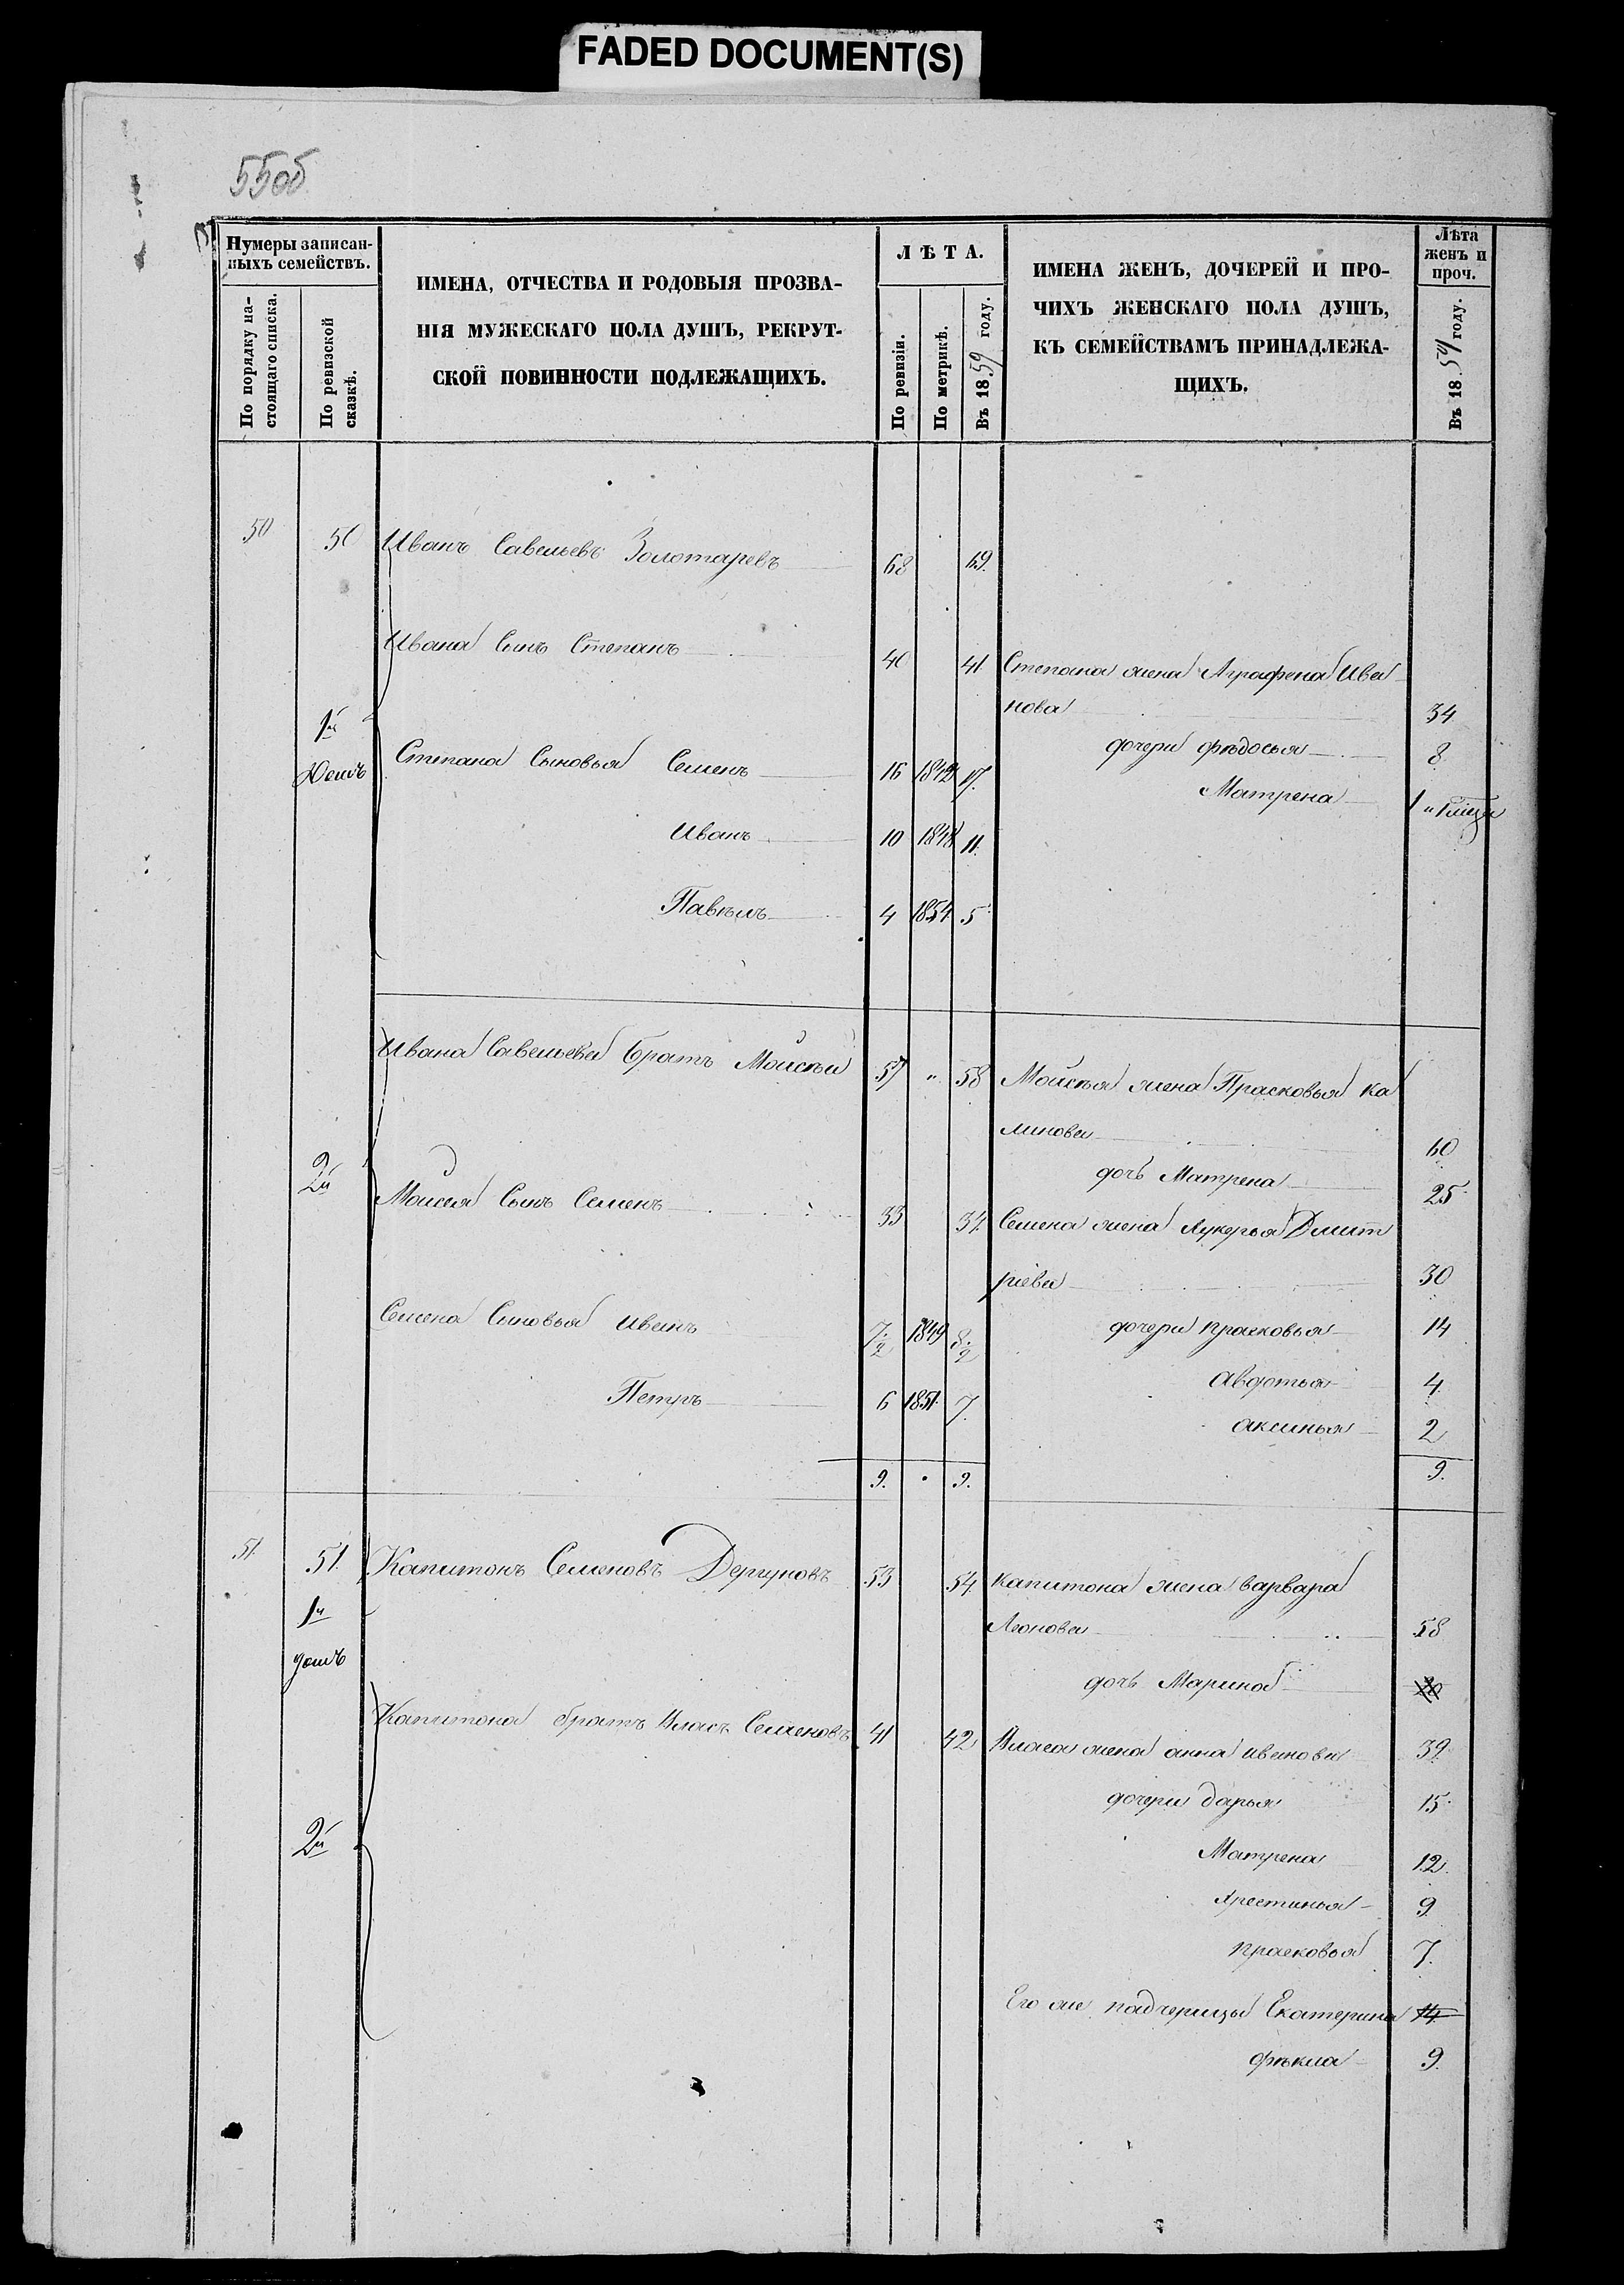 FADED DOCUMENT(S)
55об
Нумеры записан-
ныхъ семействъ.
По порядку на-
стоящаго списка.
По ревизской
сказкѣ.
ИМЕНА, ОТЧЕСТВА И РОДОВЫЯ ПРОЗВА-
НІЯ МУЖЕСКАГО ПОЛА ДУШЪ, РЕКРУТ-
СКОЙ ПОВИННОСТИ ПОДЛЕЖАЩИХЪ.
ЛѢТА.
По ревизіи.
По метрикѣ.
Въ 1859 году.
ИМЕНА ЖЕНЪ, ДОЧЕРЕЙ И ПРО-
ЧИХЪ ЖЕНСКАГО ПОЛА ДУШЪ,
КЪ СЕМЕЙСТВАМЪ ПРИНАДЛЕЖА-
ЩИХЪ.
Лѣта
женъ и
проч.
Въ 1859 году.
50 50 Иванъ Савельевъ Золотаревъ 68 69.
Ивана Сынъ Степанъ 40 41. Степана жена Аграфена Ива
нова 34
1й
Домъ
дочери Фѣдосья 8.
Степана Сыновья Семенъ 16 1842 17.
Матрена 1
Иванъ 10 1848 11.
Павѣлъ 4 1854 5
Ивана Савельева братъ Моисѣй 57 " 58 Моисѣя жена Прасковья Ка
линова 60
2й
дочь Матрена 25
Моисея Сынъ Семенъ 33 34. Семена жена Лукерья Дмит
ріева 30
Семена Сыновья Иванъ 7 1/2 1849 8 1/2 дочери прасковья 14
Авдотья 4
Петръ 6 1851 7.
аксинья 2
9. 9. 9.
51. 51. Капитонъ Семеновъ Дергуновъ 53 54. Капитона жена варвара
Леонова 58
1й
домъ
дочь Марина 20
Капитона братъ Власъ Семеновъ 41 42 Власа жена анна иванова 39.
дочери дарья 15.
2й
Матрена 12.
Хрестинья 9
прасковья 7.
Его же падчерицы Екатерина 14.
фѣкла 9.